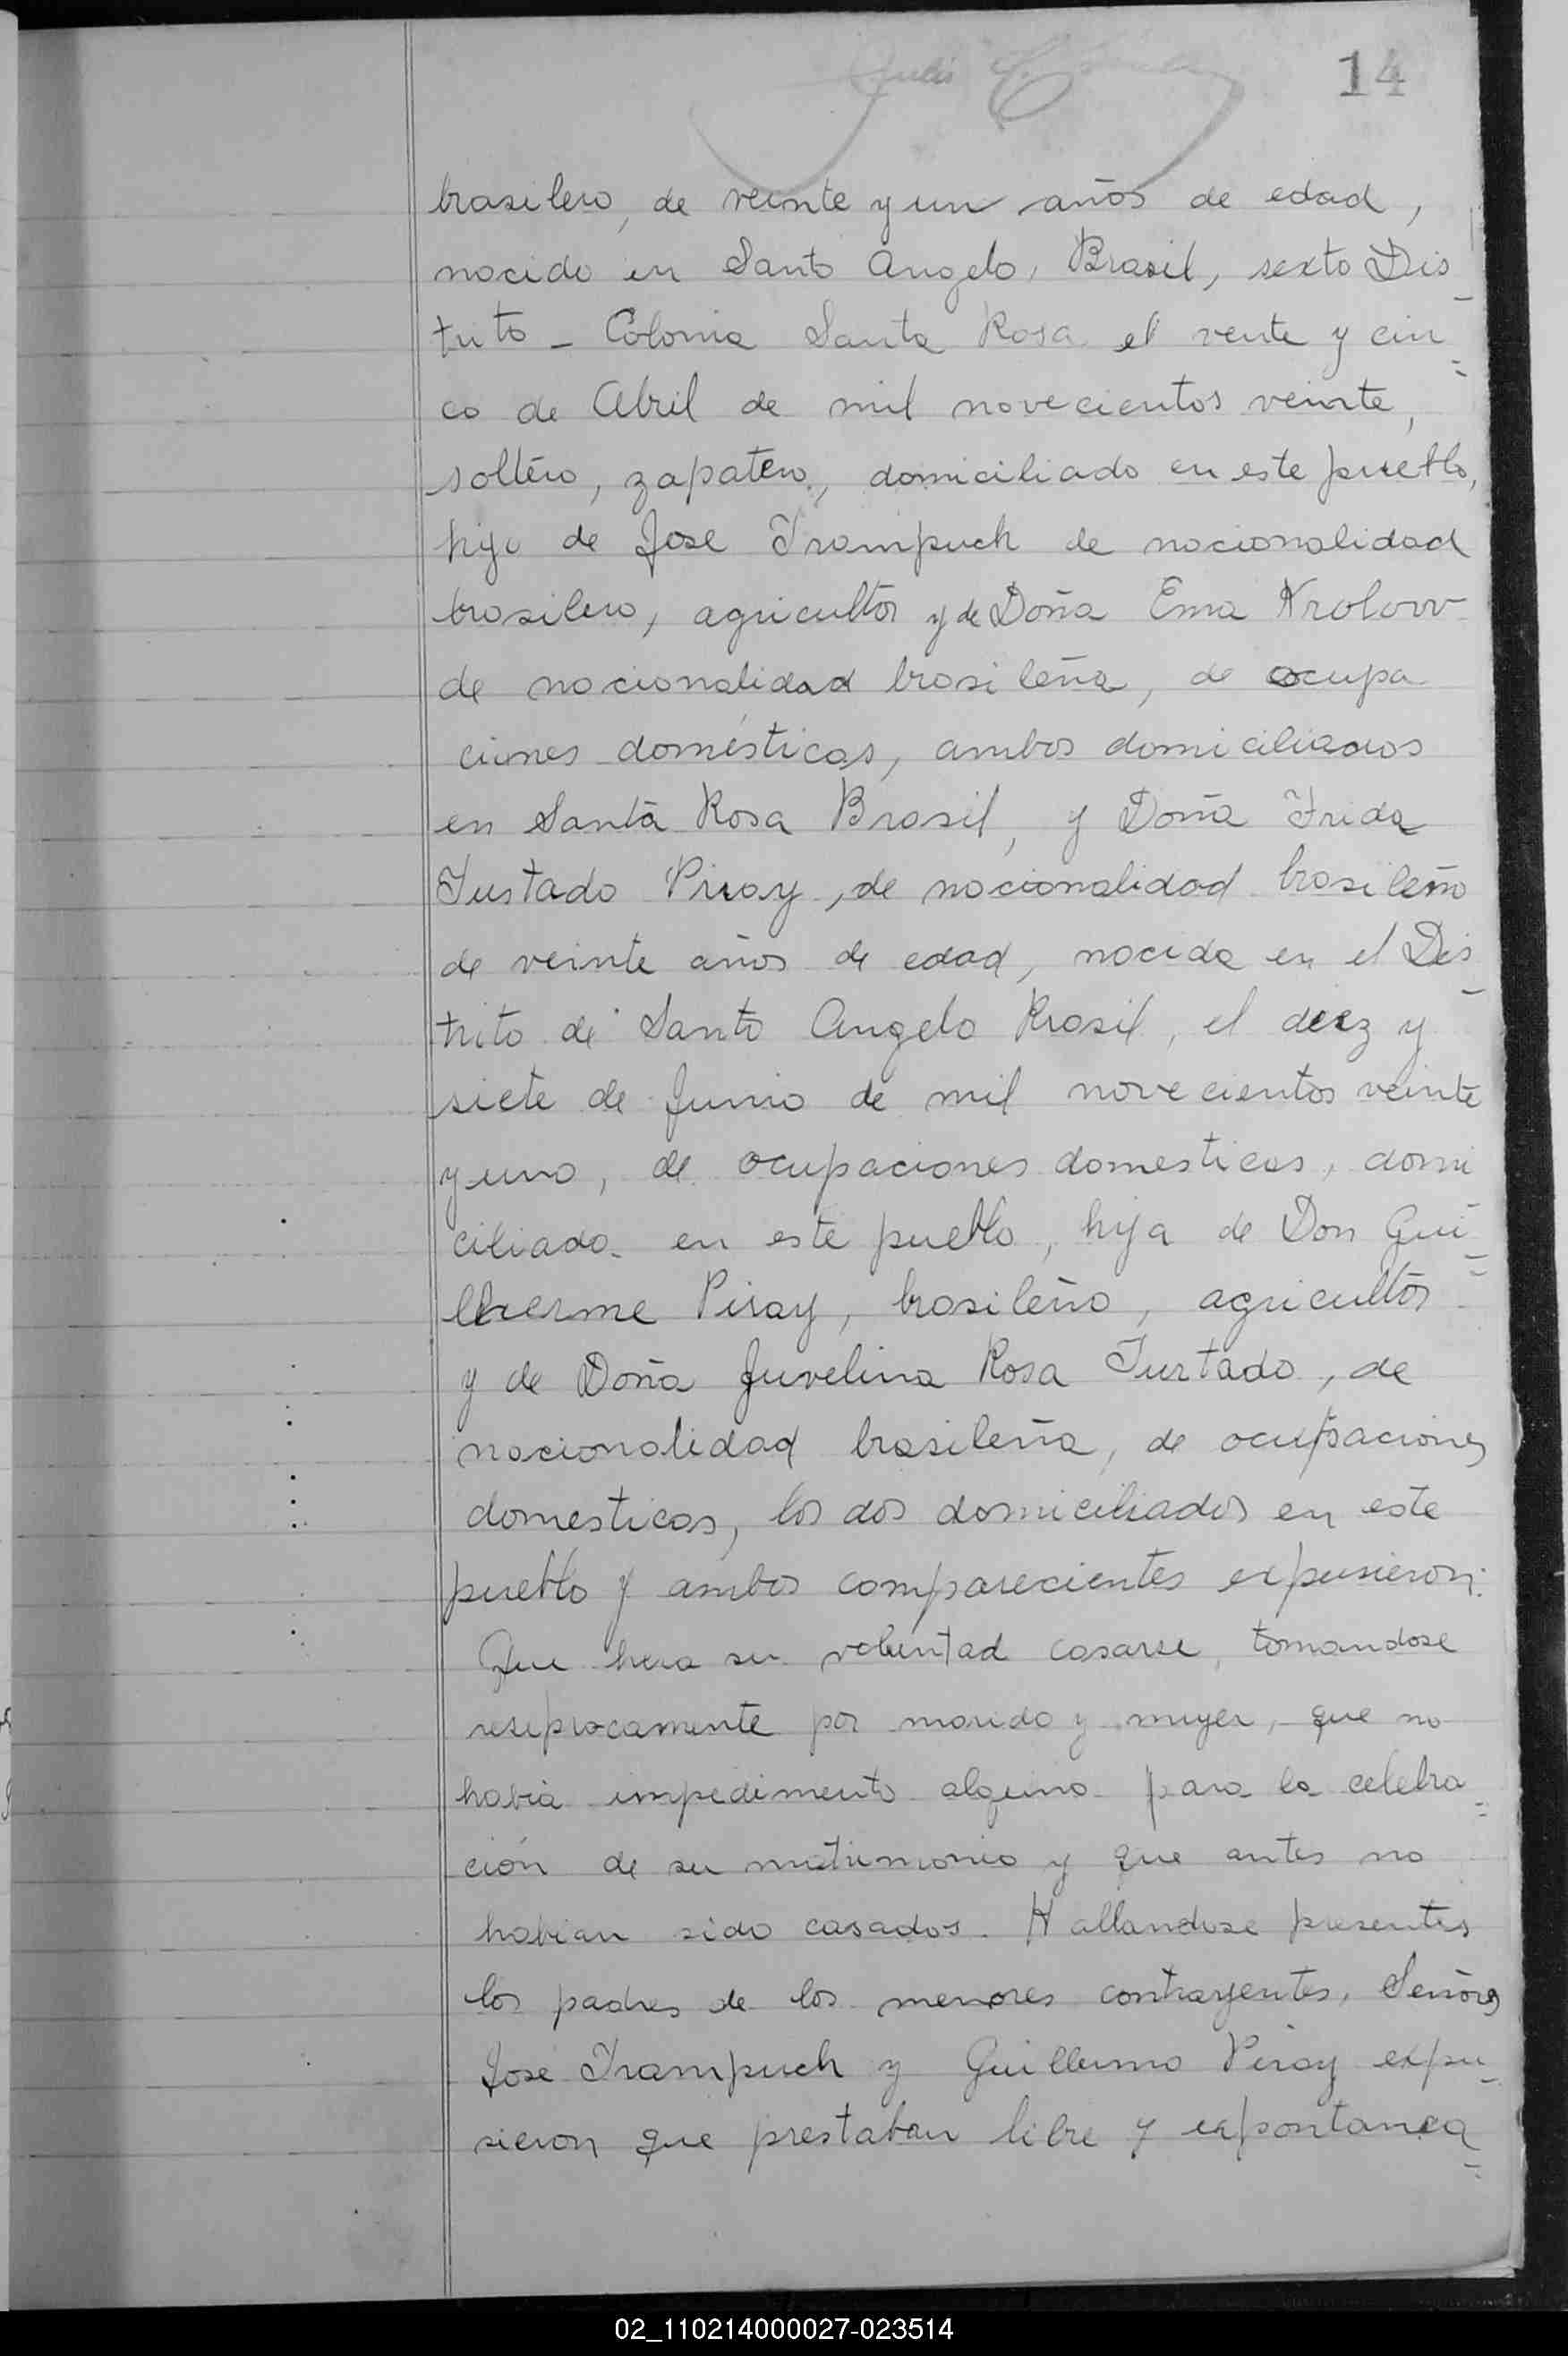 14
brasilero, de veinte y un años de edad,
nacido en Santo Angelo, Brasil, sexto Dis-
trito - Colonia Santa Rosa el vente y cin-
co de Abril de mil novecientos veinte,
soltero, zapatero, domiciliado en este pueblo,
hijo de Jose Trampuch de nacionalidad
brasilero, agricultor y de Doña Ema Krolow
de nacionalidad brasileña, de ocupa
ciones domésticas, ambos domiciliados
en Santa Rosa Brasil, y Doña Frida
Furtado Piray, de nacionalidad brasileño
de veinte años de edad, nacida en el Dis-
trito de Santo Angelo Brasil, el diez y
siete de Junio de mil novecientos veinte
y uno, de ocupaciones domesticas, domi
ciliado en este pueblo, hija de Don Gui-
lherme Piray, brasileño, agricultor
y de Doña Juvelina Rosa Furtado, de
nacionalidad brasileña, de ocupaciones
domesticas, los dos domiciliados en este
pueblo y ambos comparecientes expusieron:
Que hera su voluntad casarse, tomandose
resiprocamente por marido y mujer, que no
habia impedimento alguno para la celebra-
ción de su matrimonio y que antes no
habian sido casados. Hallandose presentes
los padres de los menores contrayentes, Señores
José Trampuch y Guillermo Piray expu-
sieron que prestaban libre y espontanea-
02_110214000027-023514